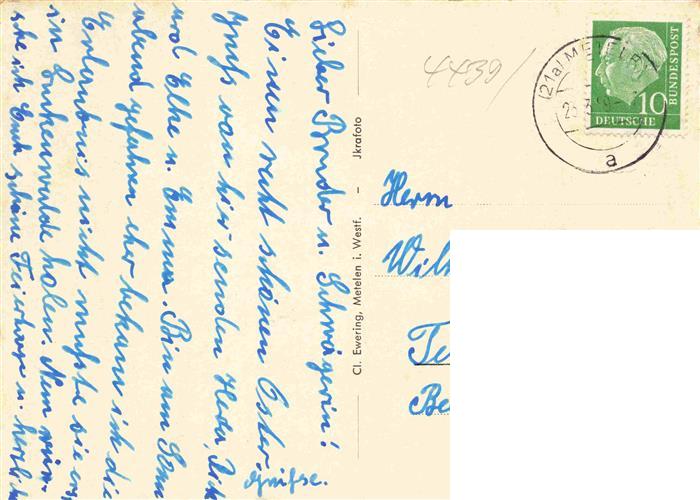 Lieber Bruder u. Schwägerin!
Einen recht schönen Oster-
gruß von hier senden Heda,
grüße.
und Elke u. Emma. Bin am Sonn
abend gefahren eher bekam ich die
Erlaubnis nicht mußte sie erst
in Finkenwalde holen. Nun wün-
sche ich Euch schöne Feiertage u. herzli
Cl. Ewering, Metelen i. Westf. – Jkrafoto
4439/
(21a) METELEN
a
10
DEUTSCHE
BUNDESPOST
Herrn
Wilh
Te
Be